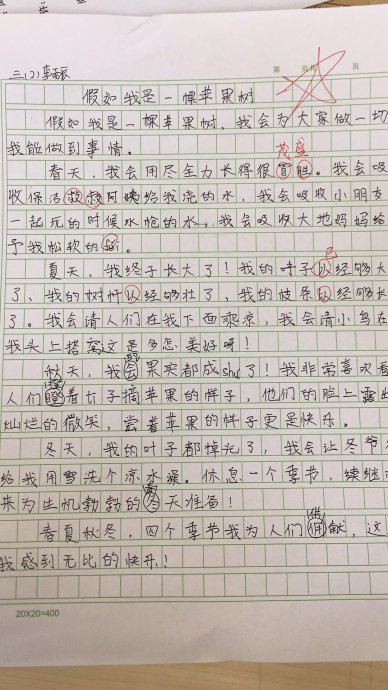 第 页 共 页
三(2) 李
假如我是一棵苹果树
假如我是一棵苹果树,我会为大家做一切
我能做到事情。
茂盛
春天,我会用尽全力长得很冒胜。我会吸
收保洁叔叔阿姨给我浇的水,我会吸收小朋友
一起玩的时候水枪的水,我会吸收大地妈妈给
予我松软的
已
夏天,我终于长大了!我的叶子以经够大
了,我的树干以经够壮了,我的枝条以经够长
了。我会请人们在我下面乘凉,我会请小鸟在
我头上搭窝这是多怎美好呀!
秋天,我会果实都成shu了!我非常喜欢看
人们着七子摘苹果的样子,他们的脸上露出
灿烂的微笑,尝着苹果的样子更是快乐。
冬天,我的叶子都掉光了,我会让冬爷
给我用雪洗个凉水澡。休息一个季节,续继
来为生机勃勃的冬天准备!
春夏秋冬,四个季节我为人们佣献,这
我感到无比的快乐!
20X20=400